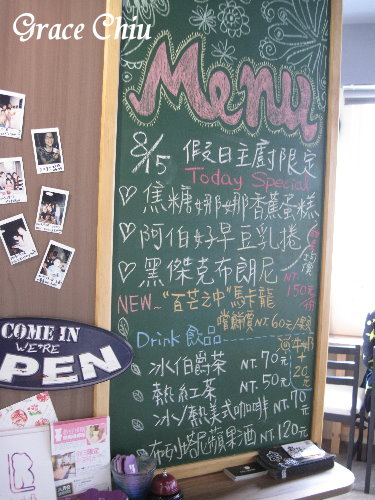 Grace Chiu
Menu
8/15 假日主廚限定
Today Special
♡焦糖娜娜香蕉蛋糕
♡阿伯好早豆乳捲
♡黑傑克布朗尼
NT. 150元/份
NEW~"百芒之中"馬卡龍
嚐鮮價NT.60元/顆
Drink 飲品
冰伯爵茶 NT.70元
熱紅茶 NT.50元
+
20元
冰/熱美式咖啡 NT.70元
布列塔尼蘋果酒 NT.120元
COME IN
WE'RE
PEN